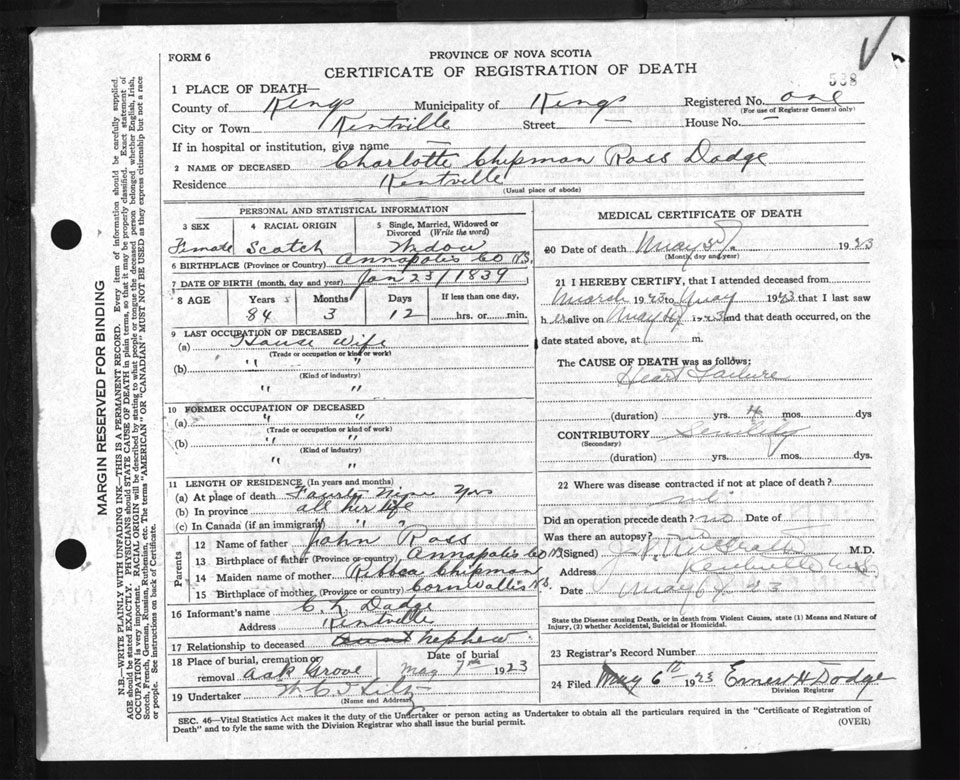 FORM 6
PROVINCE OF NOVA SCOTIA
CERTIFICATE OF REGISTRATION OF DEATH
538
1 PLACE OF DEATH—
County of Kings Municipality of Kings Registered No. one
(For use of Registrar General only)
City or Town Kentville Street — House No. —
If in hospital or institution, give name —
2 NAME OF DECEASED Charlotte Chipman Ross Dodge
Residence Kentville
(Usual place of abode)
PERSONAL AND STATISTICAL INFORMATION
3 SEX 4 RACIAL ORIGIN 5 Single, Married, Widowed or Divorced (Write the word)
Female Scotch Widow
6 BIRTHPLACE (Province or Country) Annapolis Co N.S.
7 DATE OF BIRTH (month, day and year) Jan 23/1839
8 AGE Years Months Days If less than one day,
84 3 12 hrs. or min.
9 LAST OCCUPATION OF DECEASED
(a) House Wife
(Trade or occupation or kind of work)
(b) " "
(Kind of industry)
" "
10 FORMER OCCUPATION OF DECEASED
(a) " "
(Trade or occupation or kind of work)
(b) " "
(Kind of industry)
" "
11 LENGTH OF RESIDENCE (In years and months)
(a) At place of death Fourty Nine Yrs
(b) In province all her life
(c) In Canada (if an immigrant) " "
Parents
12 Name of father John Ross
13 Birthplace of father (Province or country) Annapolis Co N.S.
14 Maiden name of mother Chipman
15 Birthplace of mother (Province or country) Cornwallis N.S.
16 Informant's name C. L. Dodge
Address Kentville
17 Relationship to deceased Nephew
18 Place of burial, cremation or removal Oak Grove Date of burial May 7th 1923
19 Undertaker
(Name and Address)
MEDICAL CERTIFICATE OF DEATH
20 Date of death May 1923
(Month, day and year)
21 I HEREBY CERTIFY, that I attended deceased from
March 1923 to May 1923 that I last saw
her alive on May 1923 and that death occurred, on
date stated above, at m.
The CAUSE OF DEATH was as follows:
Heart Failure
(duration) yrs. 4 mos. dys
CONTRIBUTORY Senility
(Secondary)
(duration) yrs. mos. dys.
22 Where was disease contracted if not at place of death?
Did an operation precede death? no Date of
Was there an autopsy? no
(Signed) M.D.
Address Kentville N.S.
Date May 23
State the Disease causing Death, or in death from Violent Causes, state (1) Means and Nature of Injury, (2) whether Accidental, Suicidal or Homicidal.
23 Registrar's Record Number
24 Filed May 6th 1923 Ernest H Dodge
Division Registrar
SEC. 46—Vital Statistics Act makes it the duty of the Undertaker or person acting as Undertaker to obtain all the particulars required in the "Certificate of Registration of
Death" and to fyle the same with the Division Registrar who shall issue the burial permit. (OVER)
MARGIN RESERVED FOR BINDING
N.B.—WRITE PLAINLY WITH UNFADING INK—THIS IS A PERMANENT RECORD. Every item of information should be carefully supplied.
AGE should be stated EXACTLY. PHYSICIANS should STATE CAUSE OF DEATH in plain terms, so that it may be properly classified. Exact statement of
OCCUPATION is very important. RACIAL ORIGIN will be described by stating to what people or tongue the deceased person belonged whether English, Irish,
Scotch, French, German, Russian, Ruthenian, etc. The terms "AMERICAN" OR "CANADIAN" MUST NOT BE USED as they express citizenship but not a race
or people. See instructions on back of Certificate.